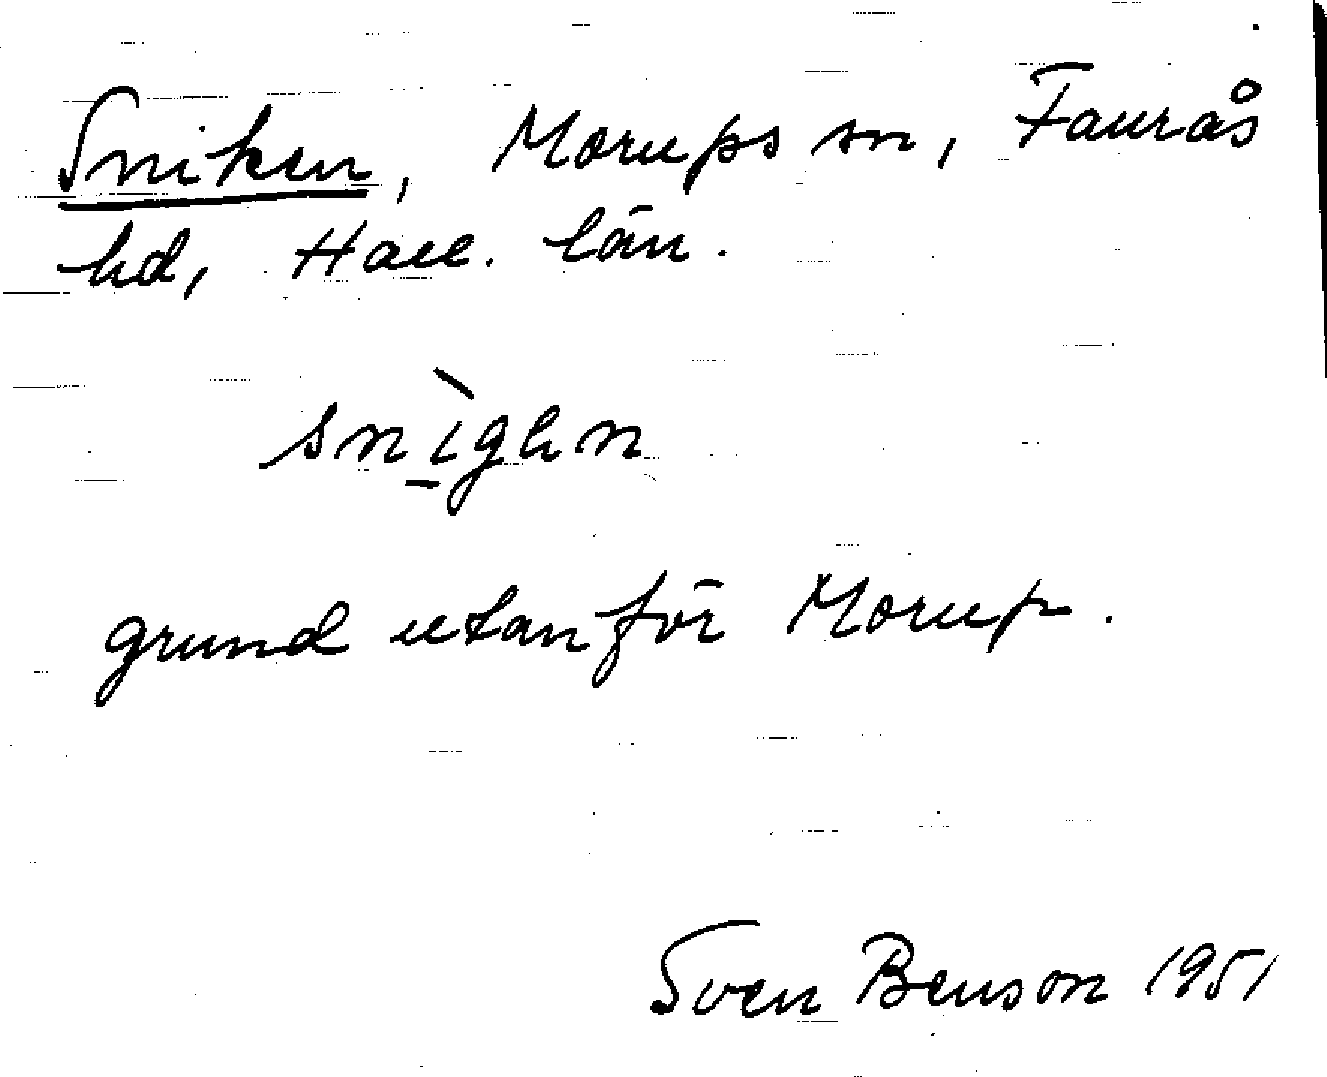 Sniken, Morups sn, Faurås
hd, Hall. län.
snìghn
grund utanför Morup.
Sven Benson 1951